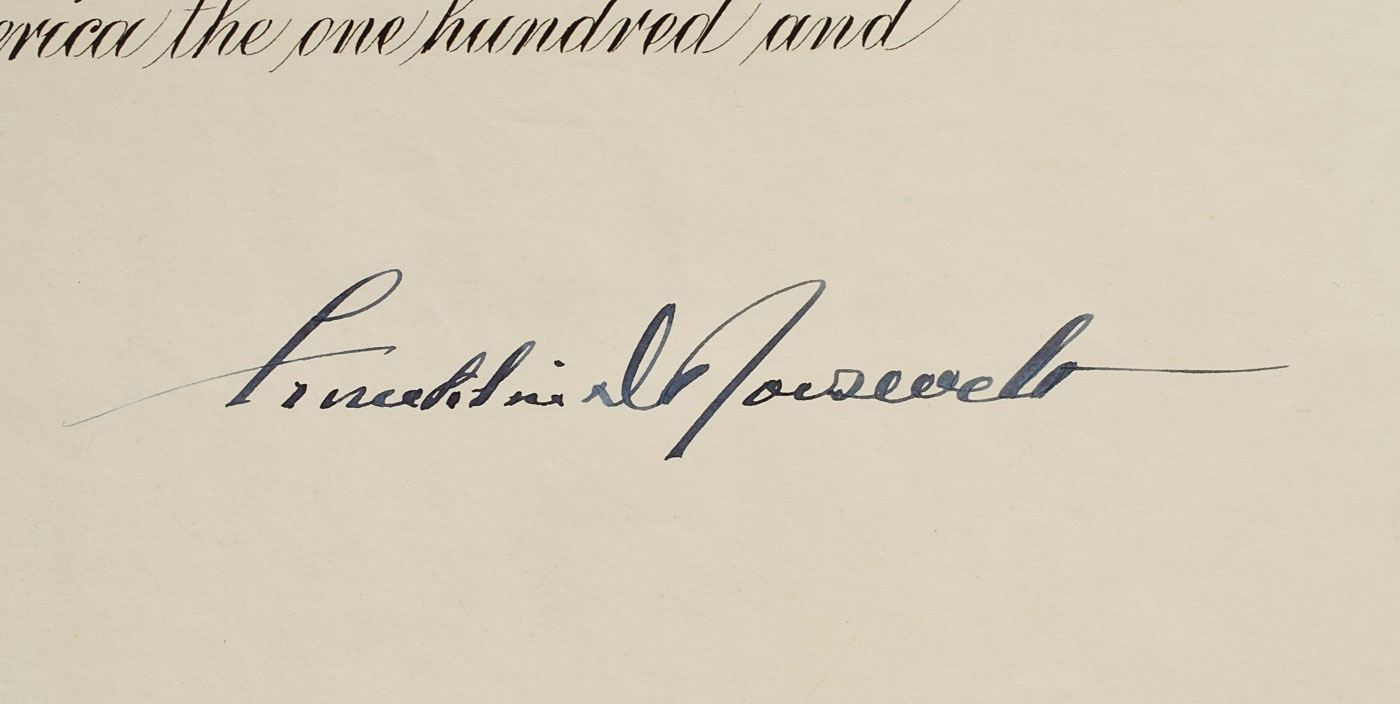 erica the one hundred and
Franklin D Roosevelt